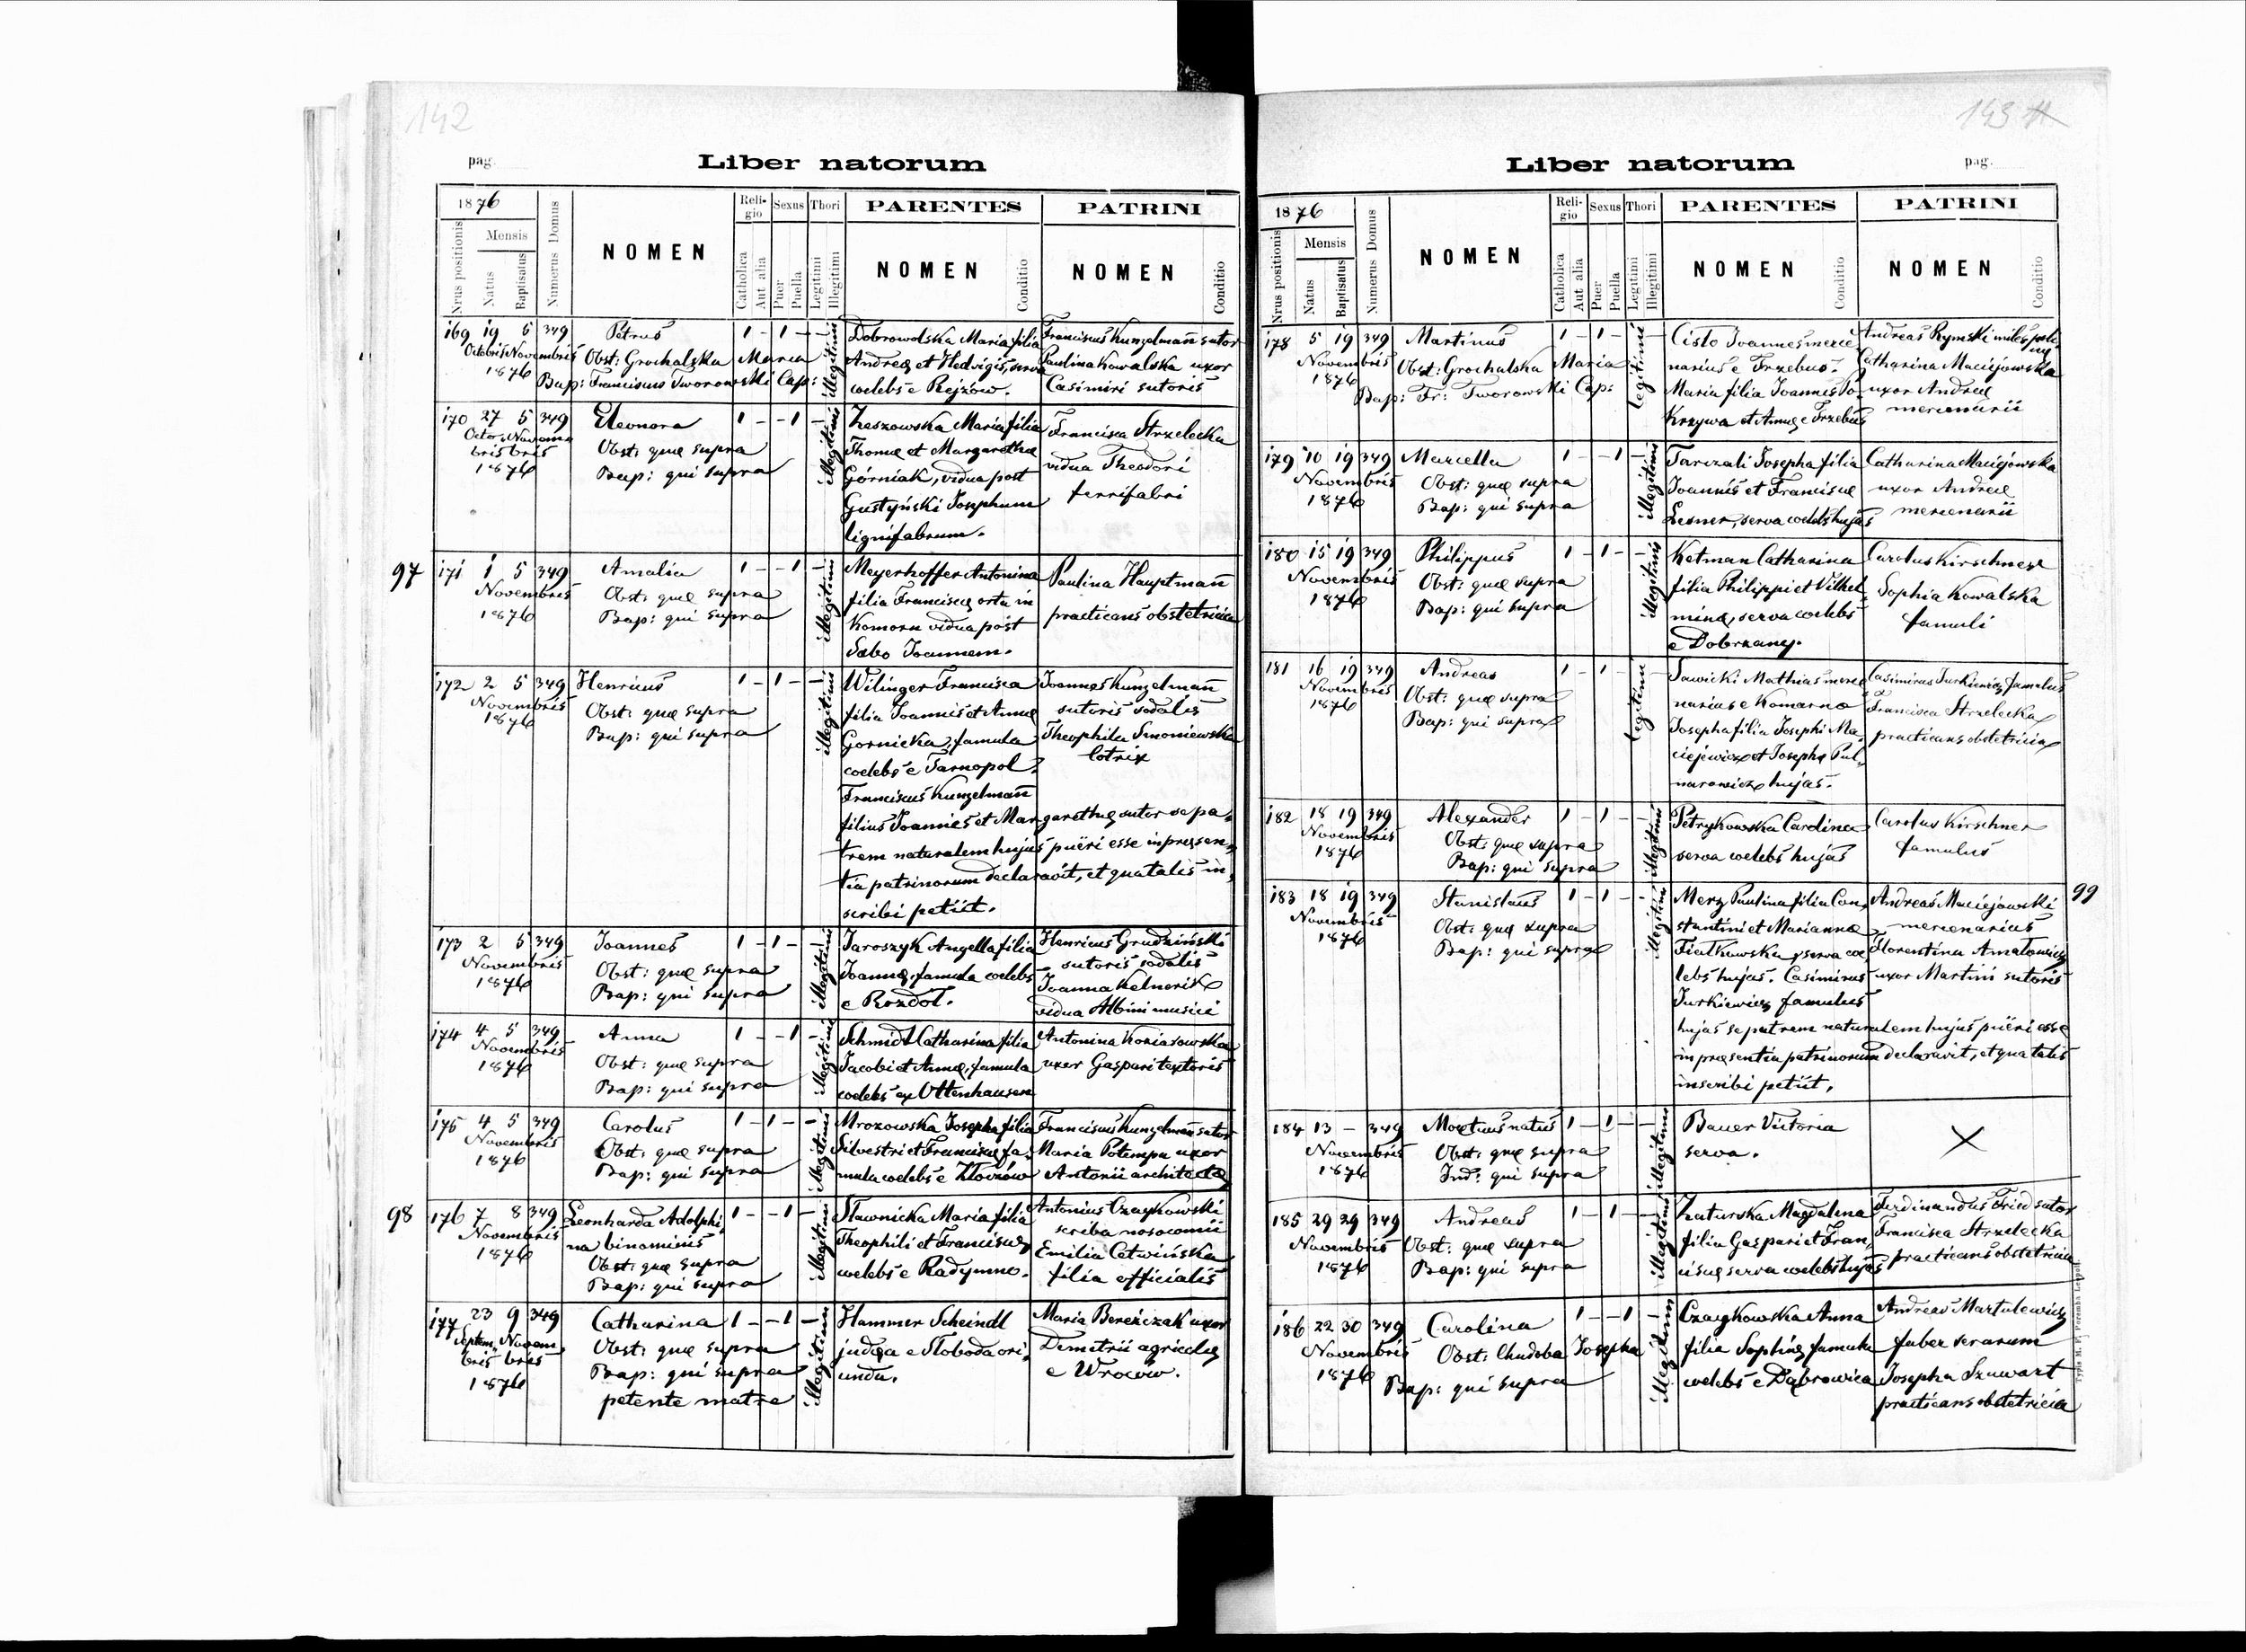 142
pag.
Liber natorum
1876
Nrus positionis
Mensis
Natus
Baptisatus
Numerus Domus
NOMEN
Religio
Catholica
Aut alia
Sexus
Puer
Puella
Thori
Legitimi
Illegitimi
PARENTES
NOMEN
Conditio
PATRINI
NOMEN
Conditio
169 19 5 349 Petrus 1 - 1 - -
Octobris Novembris
1876
Obst: Grochalska Maria
Bap: Franciscus Tworowski Cap:
illegitimi
Dobrowolska Maria filia
Andreæ et Hedvigis, serva
coelebs e Rejzów.
Franciscus Kunzelmañ sutor
Paulina Kowalska uxor
Casimiri sutoris
170 27 5 349 Eleonora 1 - - 1 -
Octobris Novembris
1876
Obst: quæ supra
Bap: qui supra
illegitimi
Zeszowska Maria filia
Thomæ et Margarethæ
Górniak, vidua post
Gustyński Josephum
lignifabrum.
Francisca Strzelecka
vidua Theodori
ferrifabri
97
171 1 5 349 Amalia 1 - - 1 -
Novembris
1876
Obst: quæ supra
Bap: qui supra
illegitimi
Meyerhoffer Antonina
filia Franciscæ orta in
Komorn vidua post
Sabo Joannem.
Paulina Hauptmañ
practicans obstetricia
172 2 5 349 Henricus 1 - 1 - -
Novembris
1876
Obst: quæ supra
Bap: qui supra
illegitimi
Wilinger Francisca
filia Joannis et Annæ
Gornicka, famula
coelebs e Tarnopol.
Franciscus Kunzelmañ
filius Joannis et Margarethæ sutor se pa-
trem naturalem hujus pueri esse in præsen-
tia patrinorum declaravit, et qua talis in-
scribi petiit.
Joannes Kunzelmañ
sutoris sodalis
Theophila Smoniewska
lotrix
173 2 5 349 Joannes 1 - 1 - -
Novembris
1876
Obst: quæ supra
Bap: qui supra
illegitimi
Jaroszyk Angella filia
Joannæ, famula coelebs
e Rozdół.
Henricus Grudziński
sutoris sodalis
Joanna Kelnerik
vidua Albini musici
174 4 5 349 Anna 1 - - 1 -
Novembris
1876
Obst: quæ supra
Bap: qui supra
illegitimi
Schmidt Catharina filia
Jacobi et Annæ, famula
coelebs ex Ottenhausen
Antonina Koziarowska
uxor Gaspari textoris
175 4 5 349 Carolus 1 - 1 - -
Novembris
1876
Obst: quæ supra
Bap: qui supra
illegitimi
Mrozowska Josepha filia
Silvestri et Franciscæ fa-
mula coelebs e Złoczów
Franciscus Kunzelmañ sutor
Maria Potempa uxor
Antonii architectæ
98
176 7 8 349 Leonharda Adolphi- 1 - - 1 -
na binominis
Novembris
1876
Obst: quæ supra
Bap: qui supra
illegitimi
Sławnicka Maria filia
Theophili et Franciscæ
coelebs e Radymno.
Antonius Czaykowski
scriba nosocomii
Emilia Cetwińska
filia officialis
177 23 9 349 Catharina 1 - - 1 -
Septembris Novembris
1876
Obst: quæ supra
Bap: qui supra
petente matre
illegitimi
Hammer Scheindl
judæa e Słoboda ori-
unda.
Maria Bereźczak uxor
Demetrii agricolæ
e Wroców.
143
Liber natorum
pag.
1876
Nrus positionis
Mensis
Natus
Baptisatus
Numerus Domus
NOMEN
Religio
Catholica
Aut alia
Sexus
Puer
Puella
Thori
Legitimi
Illegitimi
PARENTES
NOMEN
Conditio
PATRINI
NOMEN
Conditio
178 5 19 349 Martinus 1 - 1 - -
Novembris
1876
Obst: Grochalska Maria
Bap: Fr: Tworowski Cap:
legitimi
Cisło Joannes merce-
narius e Trzebus.
Maria filia Joannis To-
Krzywa et Annæ e Trzebus
Andreas Rymski miles
Catharina Maciejowska
uxor Andreæ
mercenarii
179 10 19 349 Marcella 1 - - 1 -
Novembris
1876
Obst: quæ supra
Bap: qui supra
illegitimi
Tarczali Josepha filia
Joannis et Franciscæ
Lesner, serva coelebs hujas
Catharina Maciejowska
uxor Andreæ
mercenarii
180 15 19 349 Philippus 1 - 1 - -
Novembris
1876
Obst: quæ supra
Bap: qui supra
illegitimi
Ketman Catharina
filia Philippi et Vilhel-
minæ, serva coelebs
e Dobrzany.
Carolus Kirschner
Sophia Kowalska
famuli
181 16 19 349 Andreas 1 - 1 - -
Novembris
1876
Obst: quæ supra
Bap: qui supra
legitimi
Sawicki Mathias merce-
narius e Komarno
Josepha filia Josephi Ma-
ciejewicz et Josephæ Pul-
narowicz hujas.
Casimirus Jurkiewicz famulus
Francisca Strzelecka
practicans obstetricia
182 18 19 349 Alexander 1 - 1 - -
Novembris
1876
Obst: quæ supra
Bap: qui supra
illegitimi
Petrykowska Carolina
serva coelebs hujas
Carolus Kirschner
famulus
99
183 18 19 349 Stanislaus 1 - 1 - -
Novembris
1876
Obst: quæ supra
Bap: qui supra
illegitimi
Merz Paulina filia Con-
stantini et Mariannæ
Fiałkowska, serva coe-
lebs hujas. Casimirus
Jurkiewicz famulus
hujas se patrem naturalem hujus pueri esse
in præsentia patrinorum declaravit, et qua talis
inscribi petiit.
Andreas Maciejowski
mercenarius
Florentina Amatowicz
uxor Martini sutoris
184 13 - 349 Mortuus natus 1 - 1 - -
Novembris
1876
Obst: quæ supra
Ind: qui supra
illegitimi
Bauer Victoria
serva.
X
185 29 29 349 Andreas 1 - 1 - -
Novembris
1876
Obst: quæ supra
Bap: qui supra
illegitimi
Zaturska Magdalena
filia Gaspari et Fran-
ciscæ serva coelebs hujas
Ferdinandus Fried sutor
Francisca Strzelecka
practicans obstetricia
186 22 30 349 Carolina 1 - - 1 -
Novembris
1876
Obst: Chudoba Josepha
Bap: qui supra
illegitimi
Czaykowska Anna
filia Sophiæ famula
coelebs e Dąbrowica
Andreas Martulewicz
faber serarum
Josepha Szuwart
practicans obstetricia